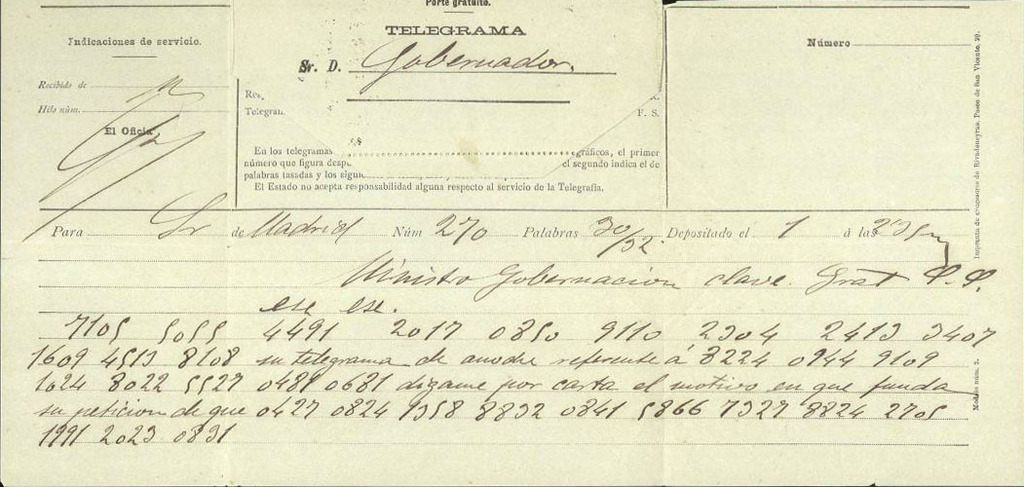 Porte gratuito.
TELEGRAMA
Indicaciones de servicio.
Sr. D. Gobernador.
Número
Recibido de
Hilo núm.
El Oficia
Rec
Telegran
F. S.
En los telegramas
gráficos, el primer
número que figura desp
el segundo indica el de
palabras tasadas y los sigu
El Estado no acepta responsabilidad alguna respecto al servicio de la Telegrafía.
Para Sr de Madrid Núm 270 Palabras 30/32 Depositado el 1 á las
Ministro Gobernacion clave.
ese ese.
7105 5055 4491 2017 0850 9110 2304 2413 3407
1609 4513 8108 su telegrama de anoche referente á 8224 0944 9109
1624 8022 5527 0481 0681 digame por carta el motivo en que funda
su peticion de que 0427 0824 9358 8832 0841 5866 7327 8824 2705
1991 2023 0831
Modelo núm. 2.